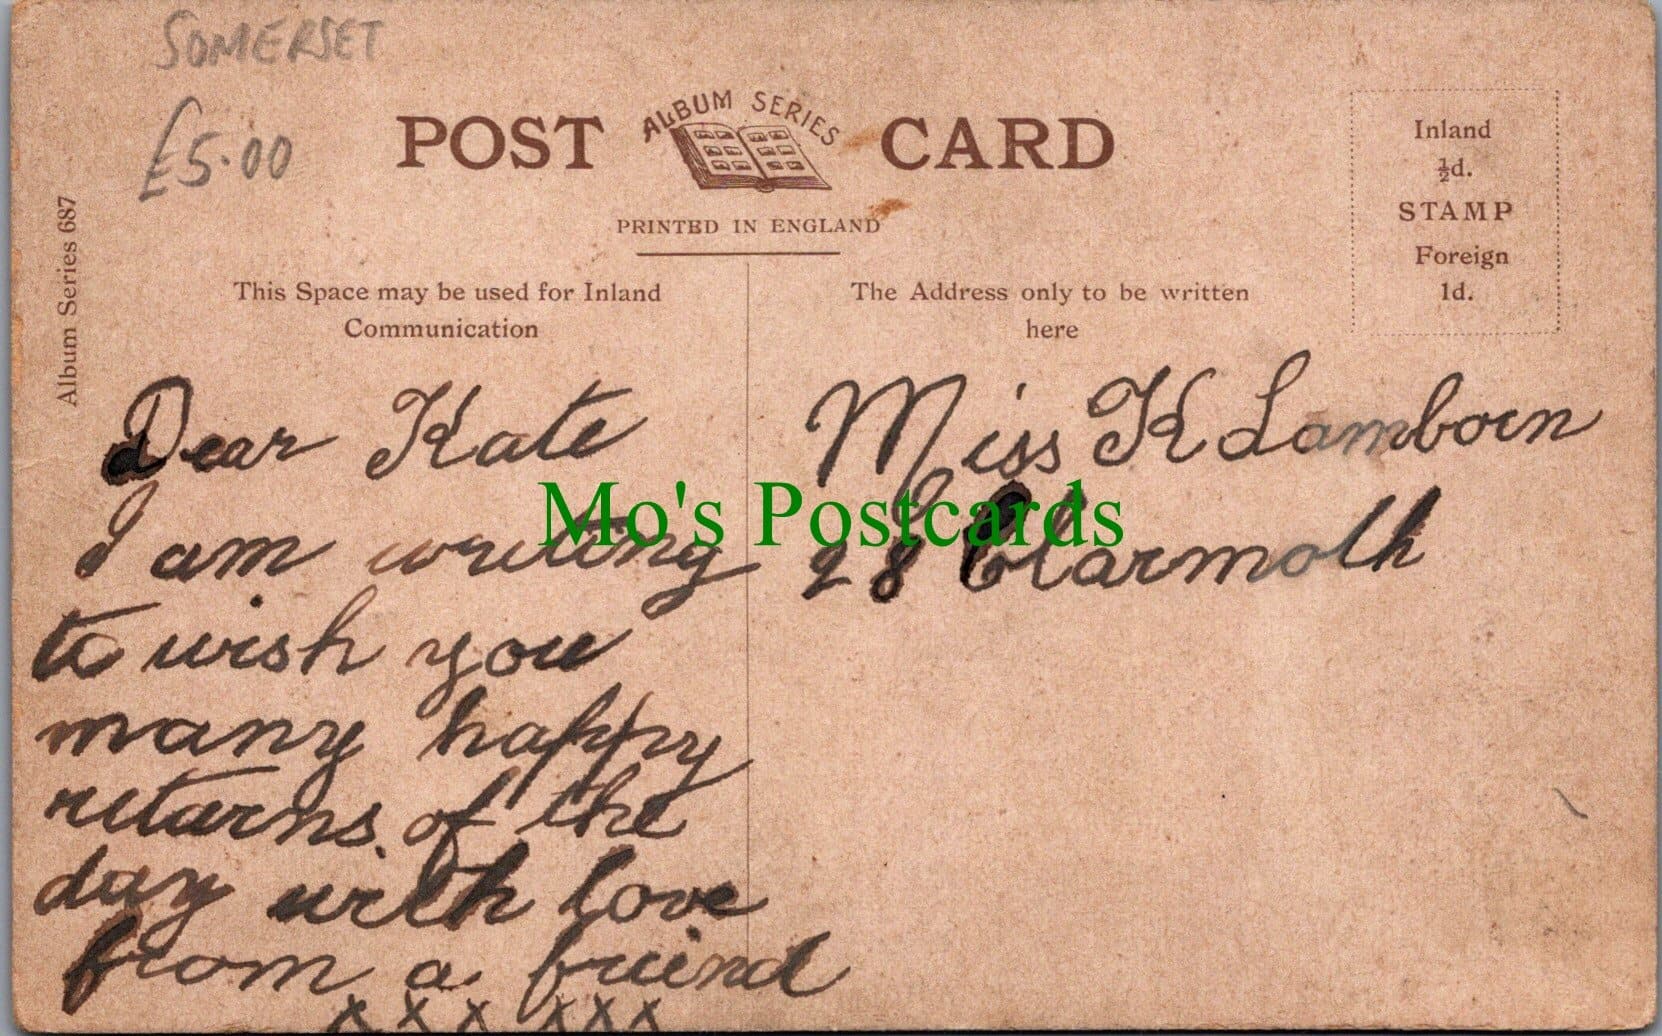 SOMERSET
£5.00
Album Series 687
POST CARD
ALBUM SERIES
PRINTED IN ENGLAND
This Space may be used for Inland
Communication
The Address only to be written
here
Inland
½d.
STAMP
Foreign
1d.
Dear Kate
I am writing
to wish you
many happy
returns of the
day with love
from a friend
x x x x x x
Miss K Lamborn
28 Clarmoth
Mo's Postcards